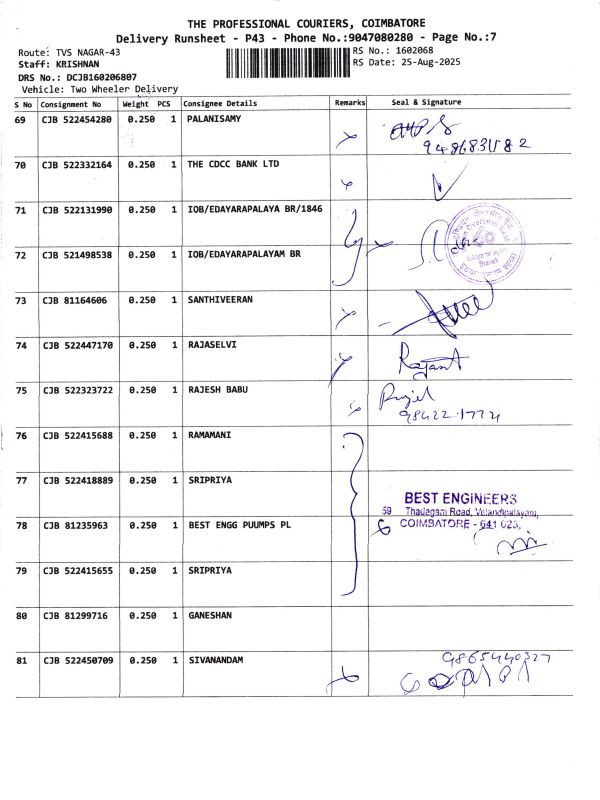 THE PROFESSIONAL COURIERS, COIMBATORE
Delivery Runsheet - P43 - Phone No.:9047080280 - Page No.:7
Route: TVS NAGAR-43
RS No.: 1602068
Staff: KRISHNAN
RS Date: 25-Aug-2025
DRS No.: DCJB160206807
Vehicle: Two Wheeler Delivery
S No Consignment No Weight PCS Consignee Details Remarks Seal & Signature
69 CJB 522454280 0.250 1 PALANISAMY
70 CJB 522332164 0.250 1 THE CDCC BANK LTD
71 CJB 522131990 0.250 1 IOB/EDAYARAPALAYA BR/1846
72 CJB 521498538 0.250 1 IOB/EDAYARAPALAYAM BR
Branch
73 CJB 81164606 0.250 1 SANTHIVEERAN
74 CJB 522447170 0.250 1 RAJASELVI
75 CJB 522323722 0.250 1 RAJESH BABU
76 CJB 522415688 0.250 1 RAMAMANI
77 CJB 522418889 0.250 1 SRIPRIYA
BEST ENGINEERS
59 Thadagam Road, Velandipalayam,
78 CJB 81235963 0.250 1 BEST ENGG PUUMPS PL
COIMBATORE - 641 025,
79 CJB 522415655 0.250 1 SRIPRIYA
80 CJB 81299716 0.250 1 GANESHAN
81 CJB 522450709 0.250 1 SIVANANDAM
9865440327